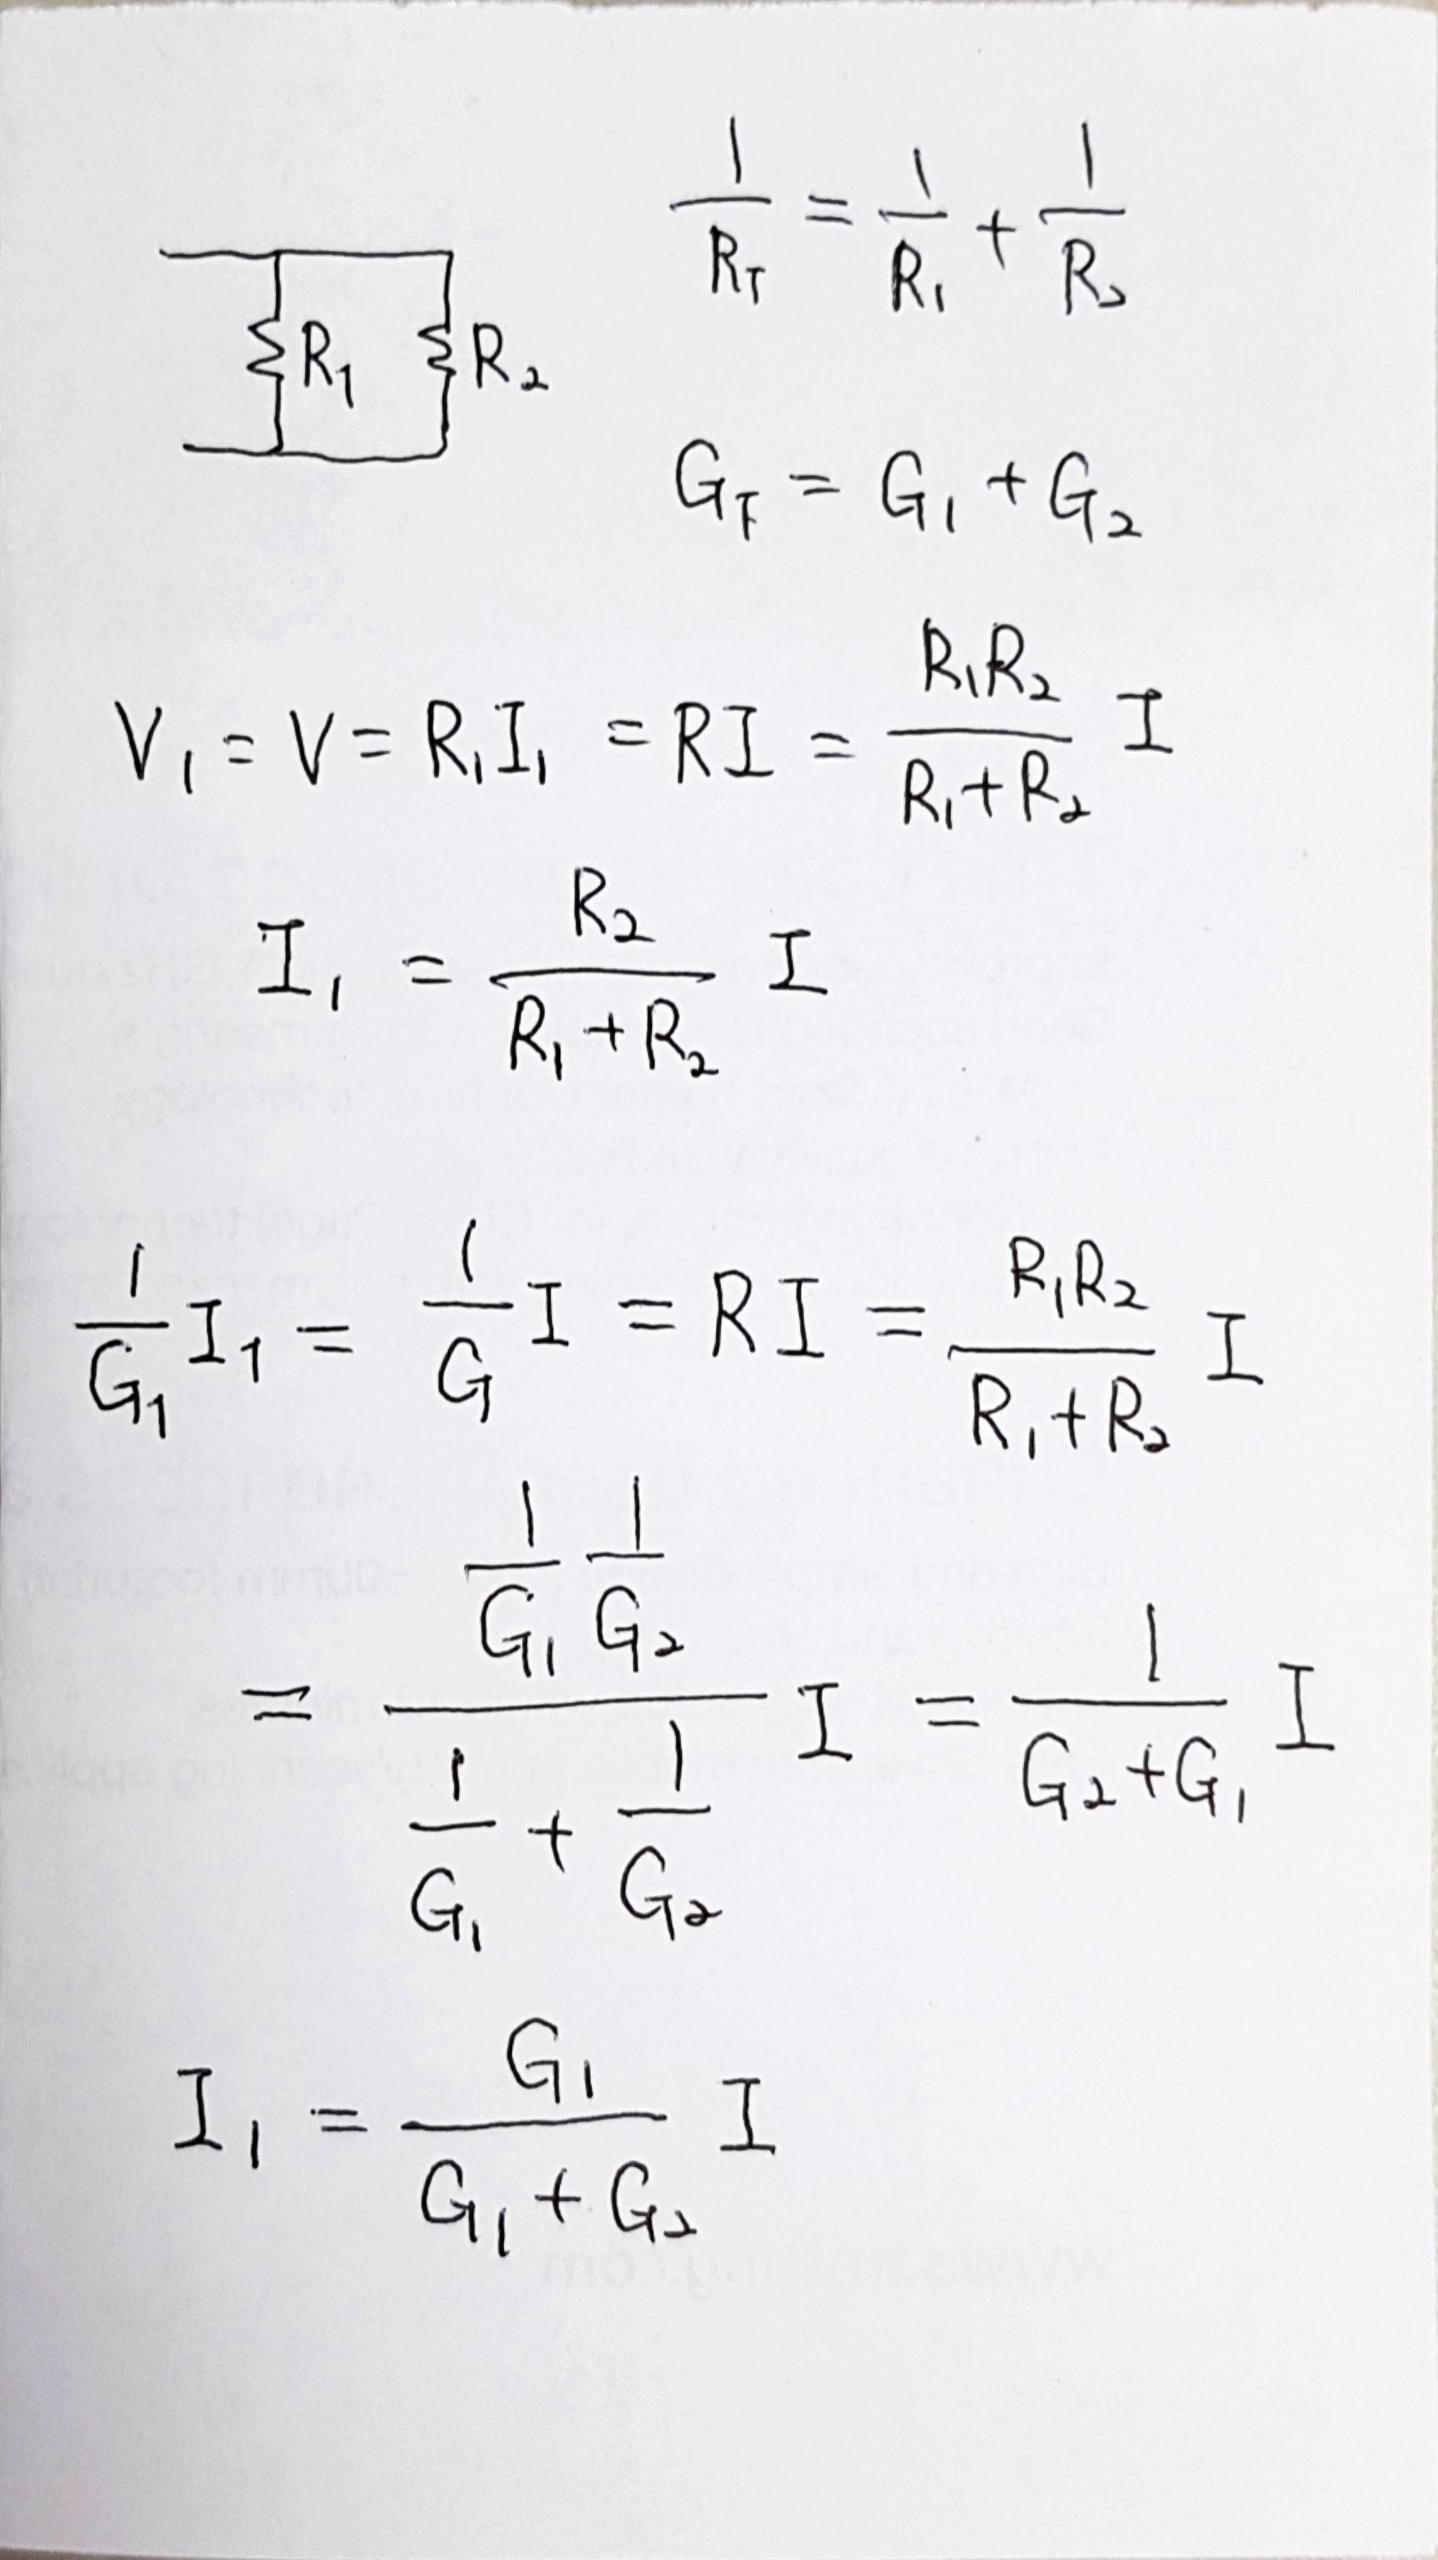 1/R_T = 1/R_1 + 1/R_2
R_1 R_2
G_T = G_1 + G_2
V_1 = V = R_1 I_1 = RI = R_1 R_2 / (R_1 + R_2) I
I_1 = R_2 / (R_1 + R_2) I
1/G_1 I_1 = 1/G I = RI = R_1 R_2 / (R_1 + R_2) I
= (1/G_1 1/G_2) / (1/G_1 + 1/G_2) I = 1 / (G_2 + G_1) I
I_1 = G_1 / (G_1 + G_2) I